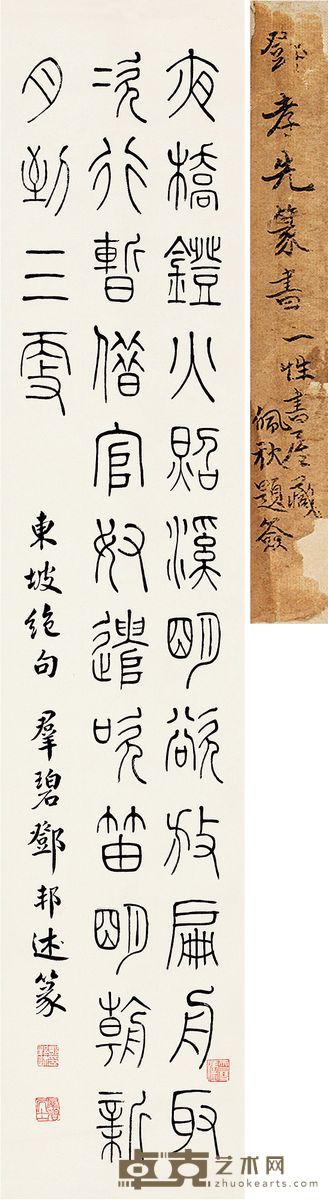 鄧孝先篆書一性書屋藏
佩秋題簽
夜橋鐙火照溪明欲放扁舟取
次行暫借官奴遣吹笛明朝新
月到三更
東坡絶句 羣碧鄧邦述篆
卓克艺术网
zhuokearts.com